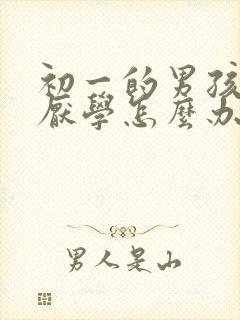 初一的男孩
厭學怎麼办
男人是山